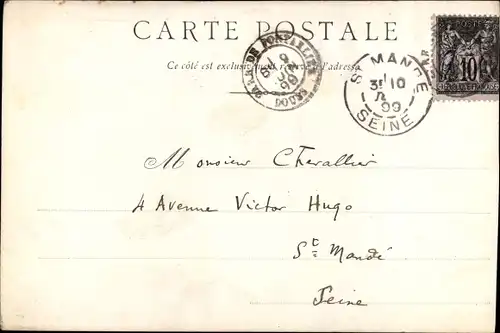 CARTE POSTALE
Ce côté est exclusivement réservé à l'adresse
GARE DE PONTARLIER
99
DOUBS
ST MANDÉ
10
99
SEINE
10
Monsieur Chevallier
4 Avenue Victor Hugo
St Mandé
Seine